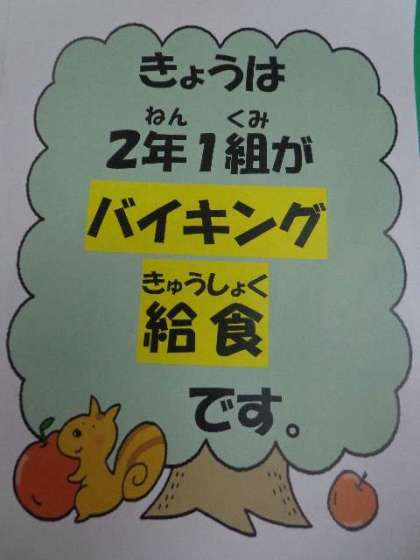 きょうは
ねん くみ
2年1組が
バイキング
きゅうしょく
給食
です。